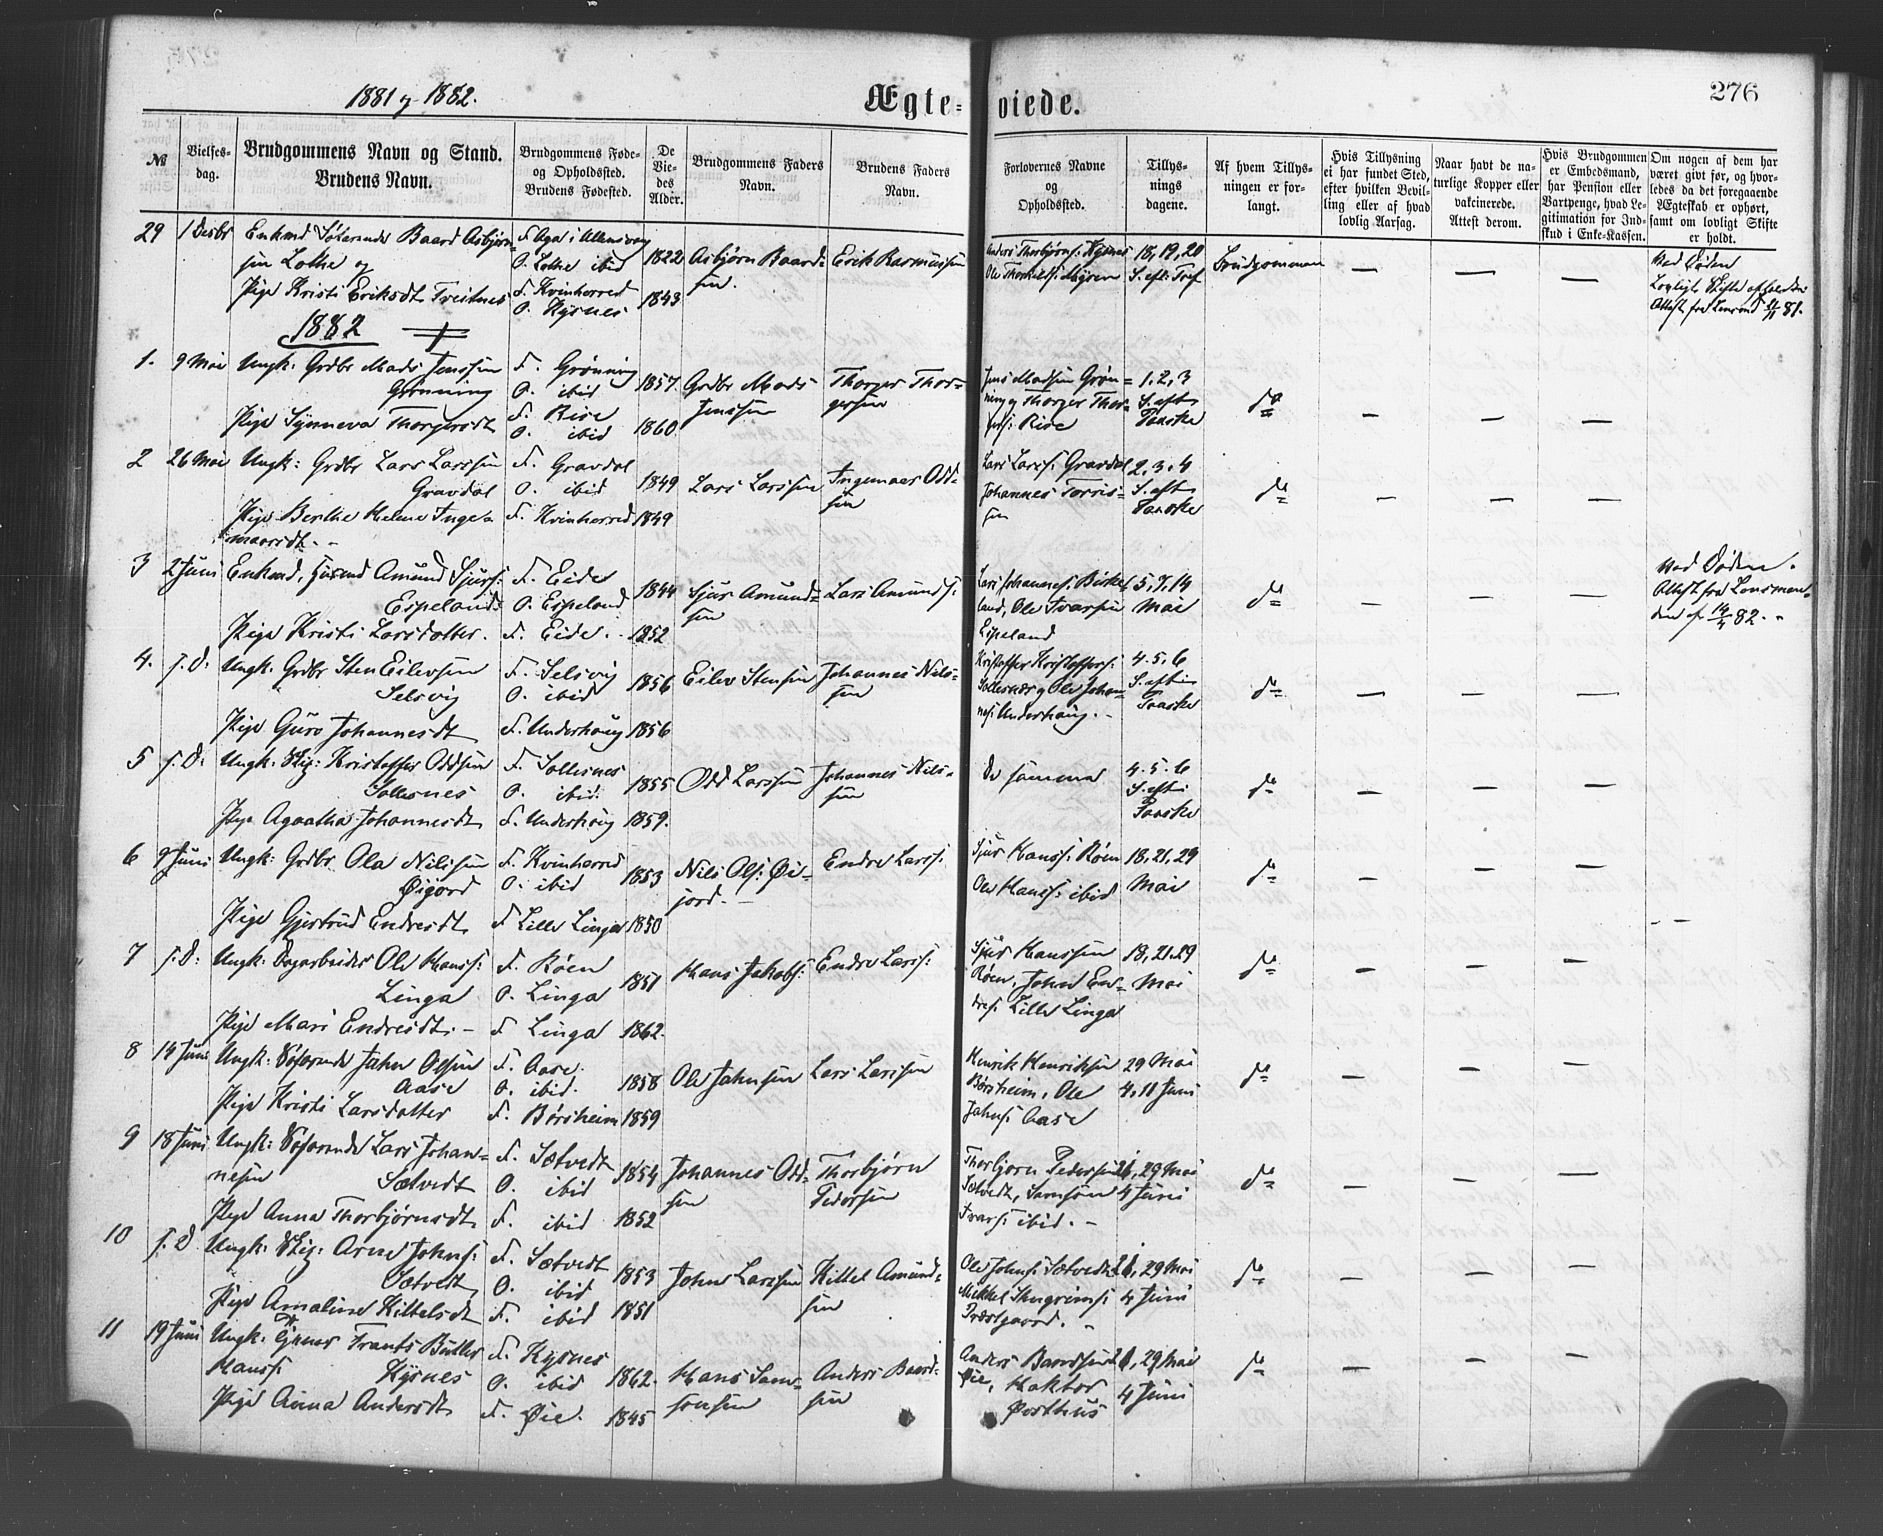 1881 og 1882.
Ægteviede.
276
№
Vielses-
dag.
Brudgommens Navn og Stand.
Brudens Navn.
Brudgommens Føde-
og Opholdsted.
Brudens Fødested.
De
Vie-
des
Alder.
Brudgommens Faders
Navn.
Brudens Faders
Navn.
Forlovernes Navne
og
Opholdsted.
Tillys-
nings
dagene.
Af hvem Tillys-
ningen er for-
langt.
Hvis Tillysning
ei har fundet Sted,
efter hvilken Bevil-
ling eller af hvad
lovlig Aarsag.
Naar havt de na-
turlige Kopper eller
vakcinerede.
Attest derom.
Hvis Brudgommen
er Embedsmand,
har Pension eller
Vartpenge, hvad Le-
gitimation for Ind-
skud i Enke-Kassen.
Om nogen af dem har
været givt før, og hvor-
ledes da det foregaaende
Ægteskab er ophørt,
samt om lovligt Skifte
er holdt.
29 1 Desbr Enkmd Føderaads Baard Asbjørn-
sen Lothe og
Pige Kristi Eriksdt Treitnes
F. Aga i Ullensvang
O. Lothe ibid
F. Kvinherred
O. Kysnes
1822
1843
Asbjørn Baard-
sen.
Erik Rasmussen
Anders Thorbjørns: Kysnes
Ole Thorkels: Myren
18, 19, 20
S. eft: Tref
Brudgommen
— — —
Ved Døden
Lovligt Skifte afholdt
Attest fra Lensmd 81.
1882
1. 9 Mai Ungk: Grdbr Mads Jenssen
Grønning
Pige Synneva Thorgersdt
F. Grønning
O. ibid
F. Rise
O. ibid
1857
1860
Grdbr Mads
Jenssen
Thorger Thor-
gersen
Jens Madsen Grøn-
ning og Thorger Thor-
gers: Rise
1, 2, 3
S. eft
Paaske
do
— — —
2 26 Mai Ungk: Grdbr Lars Larssen
Gravdal
Pige Berthe Helene Inge-
maarsdt.
F. Gravdal
O. ibid
F. Kvinherred
1849
1849
Lars Larssen
Ingemaar Odd-
sen
Lars Larss: Gravdal
Johannes Torris-
sen
2, 3, 4
S. eft
Paaske
do
— — —
3 2 Juni Enkmd, Husmd Amund Sjurs:
Espeland
Pige Kristi Larsdatter.
F. Eide
O. Espeland
F. Eide.
1844
1852
Sjur Amund-
sen
Lars Amunds:
Lars Johannes: Birke-
land, Ole Ivarsen
Espeland
5, 7, 14
Mai
do
— — —
Ved Døden.
Attest fra Lensman-
den af 14/4 82.
4. s. D. Ungk: Grdbr Sten Eilevsen
Selsvig
Pige Guro Johannesdt
F. Selsvig
O. ibid
F. Underhaug
1856
1856
Eilev Stensen
Johannes Nils-
sen
Kristoffer Kristoffers:
Sollesnæs og Ole Johan-
nes: Underhaug.
4. 5. 6
S. eft
Paaske
do
— — —
5 s. D. Ungk: Kristoffer Oddsen
Sollesnes
Pige Agaatha Johannesdt
F. Sollesnes
O. ibid.
F. Underhaug
1855
1859.
Odd Larssen
Johannes Nils-
sen
De samme
4. 5. 6
S. eft:
Paaske
do
— — —
6 9 Juni Ungk: Grdbr Ola Nilssen
Øigard
Pige Gjertrud Endresdt
F. Kvinherred
O. ibid
F. Lille Linga
1853
1850
Nils Ols: Øi-
jord.
Endre Larss:
Sjur Hanss: Røen
Ole Hanss: ibid
18, 21, 29
Mai
do
— — —
7 s. D: Ungk: Dagarbeider Ole Hanss:
Linga
Pige Mari Endresdt.
F. Røen
O. Linga
F. Linga
1851
1862.
Hans Jakobs:
Endre Larss:
Sjur Hanssen
Røen, John En-
dres: Lille Linga
18, 21. 29
Mai
do
— — —
8 14 Juni Ungk: Søfarende Jahn Olsen
Aase
Pige Kristi Larsdatter
F. Aase.
O. ibid.
F. Børsheim
1858
1859
Ole Jahnsen
Lars Larssen
Henrik Henriksen
Børsheim, Ole
Jahns: Aase
29 Mai
4, 11 Juni
do
— — —
9 18 Juni Ungk: Søfarende Lars Johan-
nesen Sætvedt
Pige Anna Thorbjørnsdt
F. Sætvedt
O. ibid
F. ibid
1854
1852
Johannes Odd-
sen
Thorbjørn
Pedersen
Thorbjørn Pedersen
Sætvedt, Samson
Ivars: ibid.
21, 29 Mai
4 Juni
do
— — —
10 s. D Ungk: Arne Johns:
Sætvedt
Pige Amaline Kittelsdt
F. Sætvedt
O. ibid
F. ibid
1853
1851
John Larssen
Kittel Amund-
sen
Ole Johns: Sætvedt
Mikkel Skugrims:
Præstgaard.
21, 29 Mai
4 Juni
do
— — —
11 19 Juni Ungk: Frants Butler
Hanss: Kysnes
Pige Anna Andersdt
F. Kysnes
O. ibid
F. Øie.
1862.
1845
Hans Sam-
sonsen
Anders Baard-
sen
Anders Baardsen
Øie, Haktor
Østhus
21, 29 Mai
4 Juni
do
— — —